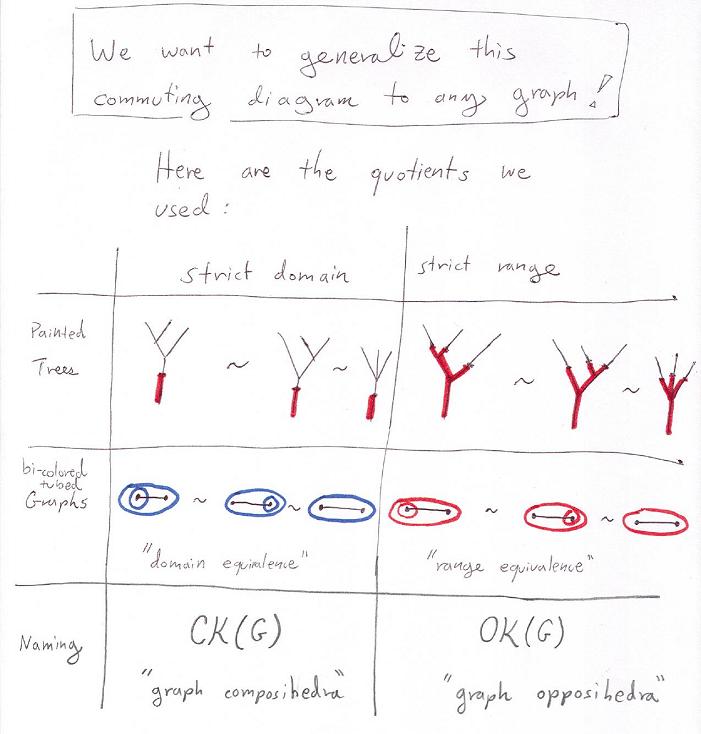 We want to generalize this
commuting diagram to any graph!
Here are the quotients we
used:
strict domain
strict range
Painted
Trees
~ ~
~ ~
bi-colored
tubed
Graphs
~ ~
~ ~
"domain equivalence"
"range equivalence"
Naming
CK(G)
OK(G)
"graph composihedra"
"graph opposihedra"